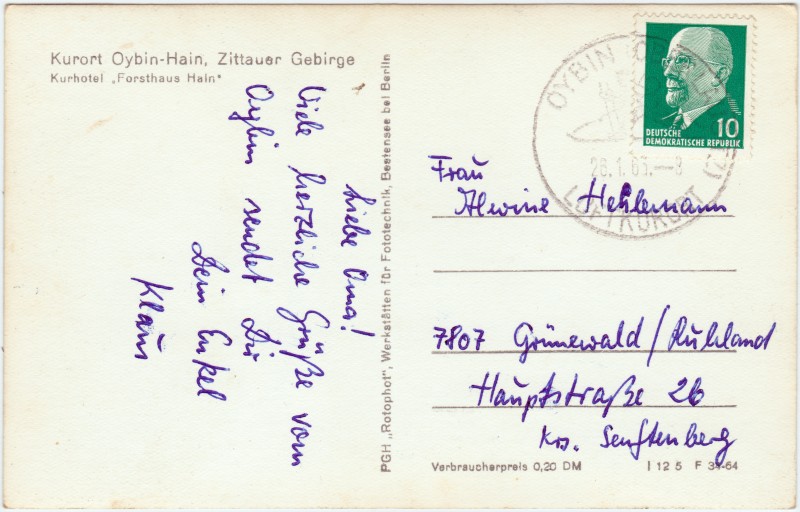 Kurort Oybin-Hain, Zittauer Gebirge
Kurhotel „Forsthaus Hain"
Liebe Oma!
Viele herzliche Grüße vom
Oybin sendet Dir
Dein Enkel
Klaus
PGH „Rotophot", Werkstätten für Fototechnik, Bestensee bei Berlin
OYBIN
LUFTKURORT
DEUTSCHE
DEMOKRATISCHE REPUBLIK
10
Frau
Alwine Hehlemann
7807 Grünewald/Ruhland
Hauptstraße 26
Krs. Senftenberg
Verbraucherpreis 0,20 DM
I 12 5 F 31-64